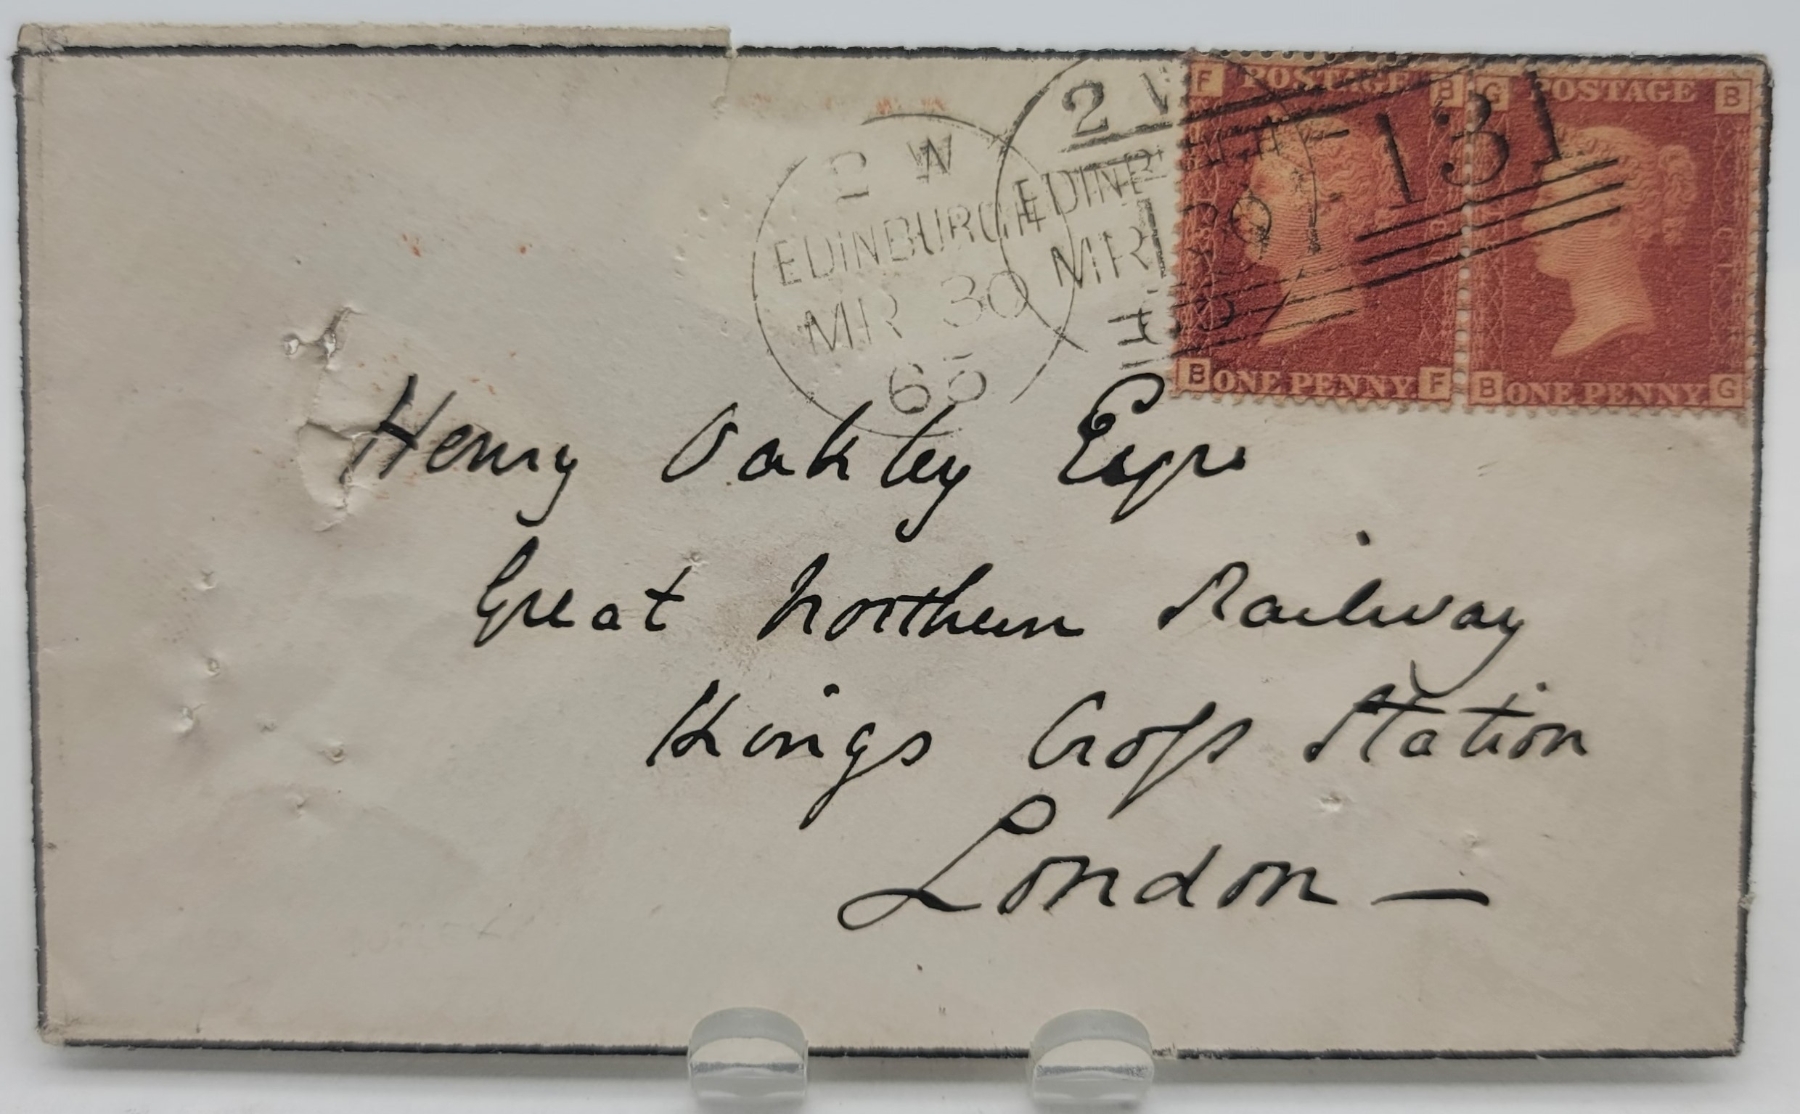 2 W
EDINBURGH
MR 30
65
2 W
EDINB
MR
131
F POSTAGE B
B ONE PENNY F
G POSTAGE B
B ONE PENNY G
Henry Oakley Esqre
Great Northern Railway
Kings Croſs Station
London —